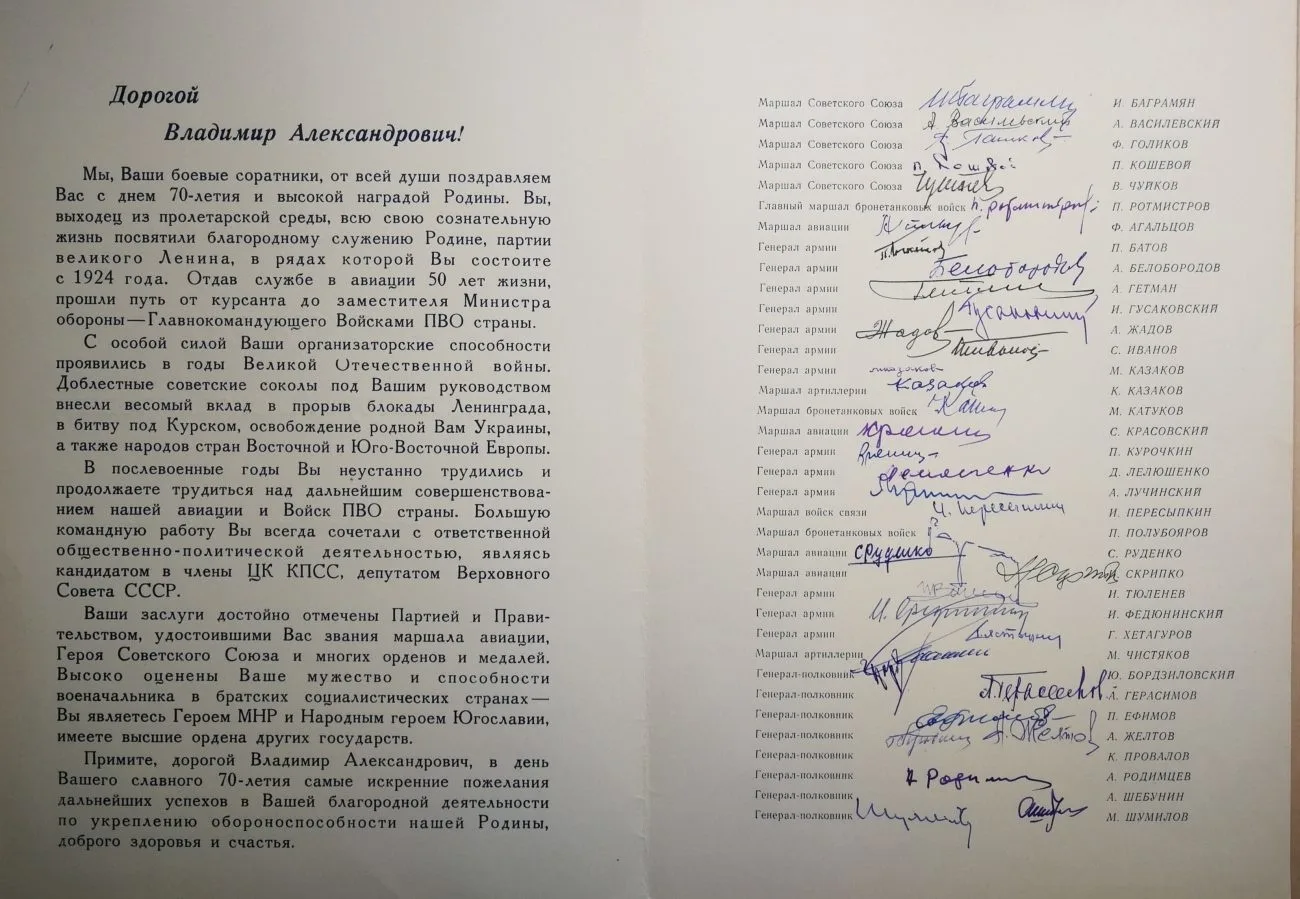 Дорогой
Владимир Александрович!
Мы, Ваши боевые соратники, от всей души поздравляем
Вас с днем 70-летия и высокой наградой Родины. Вы,
выходец из пролетарской среды, всю свою сознательную
жизнь посвятили благородному служению Родине, партии
великого Ленина, в рядах которой Вы состоите
с 1924 года. Отдав службе в авиации 50 лет жизни,
прошли путь от курсанта до заместителя Министра
обороны—Главнокомандующего Войсками ПВО страны.
С особой силой Ваши организаторские способности
проявились в годы Великой Отечественной войны.
Доблестные советские соколы под Вашим руководством
внесли весомый вклад в прорыв блокады Ленинграда,
в битву под Курском, освобождение родной Вам Украины,
а также народов стран Восточной и Юго-Восточной Европы.
В послевоенные годы Вы неустанно трудились и
продолжаете трудиться над дальнейшим совершенствова-
нием нашей авиации и Войск ПВО страны. Большую
командную работу Вы всегда сочетали с ответственной
общественно-политической деятельностью, являясь
кандидатом в члены ЦК КПСС, депутатом Верховного
Совета СССР.
Ваши заслуги достойно отмечены Партией и Прави-
тельством, удостоившими Вас звания маршала авиации,
Героя Советского Союза и многих орденов и медалей.
Высоко оценены Ваше мужество и способности
военачальника в братских социалистических странах—
Вы являетесь Героем МНР и Народным героем Югославии,
имеете высшие ордена других государств.
Примите, дорогой Владимир Александрович, в день
Вашего славного 70-летия самые искренние пожелания
дальнейших успехов в Вашей благородной деятельности
по укреплению обороноспособности нашей Родины,
доброго здоровья и счастья.
Маршал Советского Союза И. БАГРАМЯН
Маршал Советского Союза А. Василевский А. ВАСИЛЕВСКИЙ
Маршал Советского Союза Ф. ГОЛИКОВ
Маршал Советского Союза П. КОШЕВОЙ
Маршал Советского Союза В. ЧУЙКОВ
Главный маршал бронетанковых войск П. РОТМИСТРОВ
Маршал авиации Ф. АГАЛЬЦОВ
Генерал армии П. БАТОВ
Генерал армии Белобородов А. БЕЛОБОРОДОВ
Генерал армии А. ГЕТМАН
Генерал армии И. ГУСАКОВСКИЙ
Генерал армии Жадов А. ЖАДОВ
Генерал армии С. ИВАНОВ
Генерал армии М. КАЗАКОВ
Маршал артиллерии Казаков К. КАЗАКОВ
Маршал бронетанковых войск М. КАТУКОВ
Маршал авиации С. КРАСОВСКИЙ
Генерал армии П. КУРОЧКИН
Генерал армии Д. ЛЕЛЮШЕНКО
Генерал армии А. ЛУЧИНСКИЙ
Маршал войск связи И. Пересыпкин И. ПЕРЕСЫПКИН
Маршал бронетанковых войск П. ПОЛУБОЯРОВ
Маршал авиации С. РУДЕНКО
Маршал авиации СКРИПКО
Генерал армии И. ТЮЛЕНЕВ
Генерал армии И. ФЕДЮНИНСКИЙ
Генерал армии Г. ХЕТАГУРОВ
Маршал артиллерии М. ЧИСТЯКОВ
Генерал-полковник Ю. БОРДЗИЛОВСКИЙ
Генерал-полковник А. ГЕРАСИМОВ
Генерал-полковник П. ЕФИМОВ
Генерал-полковник А. ЖЕЛТОВ
Генерал-полковник К. ПРОВАЛОВ
Генерал-полковник А. РОДИМЦЕВ
Генерал-полковник А. ШЕБУНИН
Генерал-полковник М. ШУМИЛОВ